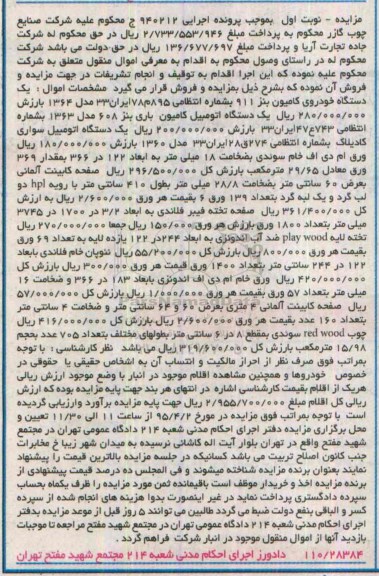 مزایده - نوبت اول بموجب پرونده اجرایی ۹۴۰۲۱۲ ج محکوم علیه شرکت صنایع
چوب گازر محکوم به پرداخت مبلغ ۲/۷۳۳/۵۵۳/۹۴۶ ریال در حق محکوم له شرکت
جاده تجارت آریا و پرداخت مبلغ ۱۳۶/۶۷۷/۶۹۷ ریال در حق-دولت می باشد شرکت
محکوم له در راستای وصول محکوم به اقدام به معرفی اموال منقول متعلق به شرکت
محکوم علیه نموده که این اجرا اقدام به توقیف و انجام تشریفات در جهت مزایده و
فروش آن نموده که بشرح ذیل بمزایده و فروش قرار می گیرد مشخصات اموال : یک
دستگاه خودروی کامیون بنز ۹۱۱ بشماره انتظامی ۸۹۵م۷۸ایران۳۳ مدل ۱۳۶۴ بارزش
۲۸۰/۰۰۰/۰۰۰ ریال یک دستگاه اتومبیل کامیون باری بنز ۶۰۸ مدل ۱۳۶۳ بشماره
انتظامی ۷۴۳ع۴۷ایران۳۳ بارزش ۲۰۰/۰۰۰/۰۰۰ ریال یک دستگاه اتومبیل سواری
کادیلاک بشماره انتظامی ۲۷۴ق۲۸ایران۳۳ مدل ۱۳۶۰ بارزش ۱۸۰/۰۰۰/۰۰۰ ریال
ورق ام دی اف خام سوندی بضخامت ۱۸ میلی متر به ابعاد ۱۲۲ در ۳۶۶ بمقدار ۳۶۹
ورق معادل ۲۹/۶۵ مترمکعب بارزش کل ۲۹۶/۵۰۰/۰۰۰ ریال صفحه کابینت آلمانی
بعرض ۶۰ سانتی متر بضخامت ۲۸/۸ میلی متر بطول ۴۱۰ سانتی متر با رویه hpl دو
لب گرد و یک لبه گرد بتعداد ۱۳۹ ورق ۶ بقیمت هر ورق ۲/۶۰۰/۰۰۰ ریال به ارزش
کل ۳۶۱/۴۰۰/۰۰۰ ریال صفحه تخته فیبر فنلاندی به ابعاد ۳/۲ در ۱۷۰۰ در ۳۷۴۵
میلی متر بتعداد ۱۸۰۰ ورق بارزش هر ورق ۱۵۰/۰۰۰ ریال جمعا ۲۷۰/۰۰۰/۰۰۰ ریال
تخته لایه play wood ضد آب اندونزی به ابعاد ۲۴۴در ۱۲۲ یازده لایه به تعداد ۶۹ ورق
بقیمت هر ورق ۸۰۰/۰۰۰ ریال بارزش کل ۵۵/۲۰۰/۰۰۰ ریال نئوپان خام فنلاندی باابعاد
۱۲۲ در ۲۴۴ سانتی متر بتعداد ۱۴۰۰ ورق قیمت هر ورق ۳۰۰/۰۰۰ ریال بارزش کل
۴۲۰/۰۰۰/۰۰۰ ریال ورق خام ام دی اف اندونزی بابعاد ۱۸۳ در ۳۶۶ و ضخامت ۱۶
میلی متر بتعداد ۵۷ ورق بقیمت هر ورق ۱/۰۰۰/۰۰۰ ریال بارزش کل ۵۷/۰۰۰/۰۰۰
ریال صفحه کابینت آلمانی ۴ متری بعرض ۶۰ و ۶۴ سانتی متر و ضخامت ۴ سانتی متر
بتعداد ۱۶۰ عدد بقیمت هر ورق ۲/۶۰۰/۰۰۰ ریال بارزش کل ۴۱۶/۰۰۰/۰۰۰ ریال
چوب red wood سوندی بمقطع ۸ در ۶ سانتی متر بطولهای مختلف بتعداد ۷۰۵ عدد بحجم
۱۵/۹ مترمکعب بارزش کل ۳۱۹/۶۰۰/۰۰۰ ریال می باشد نظر کارشناسی : با توجه
بمراتب فوق صرف نظر از احراز مالکیت و انتساب آن به اشخاص حقیقی یا حقوقی در
خصوص خودروها و همچنین مشاهده اقلام موجود در انبار با وضع موجود ارزش ریالی
هریک از اقلام بقیمت کارشناسی اشاره در انتهای هر بند جهت پایه مزایده بوده که ارزش
ریالی کل اقلام مبلغ ۲/۹۵۵/۷۰۰/۰۰۰ ریال جهت پایه مزایده برآورد وارزیابی گردیده
است با توجه بمراتب فوق مزایده در مورخ ۹۵/۴/۲ از ساعت ۱۱ الی ۱۱/۳۰ تعیین و
محل برگزاری مزایده دفتر اجرای احکام مدنی شعبه ۲۱۴ دادگاه عمومی تهران در مجتمع
شهید مفتح واقع در تهران بلوار آیت اله کاشانی نرسیده به میدان شهر زیبا خ مخابرات
جنب کانون اصلاح تربیت می باشد کسانیکه در جلسه مزایده بالاترین قیمت را پیشنهاد
نمایند بعنوان برنده مزایده شناخته میشوند و فی المجلس ده درصد قیمت پیشنهادی از
برنده مزایده اخذ و خریدار موظف است باقیمانده ثمن مورد مزایده را ظرف یکماه بحساب
سپرده دادگستری پرداخت نماید در غیر اینصورت بدوا هزینه های انجام شده از سپرده
کسر و الباقی بنفع دولت ضبط می گردد طالبین می توانند ۵ روز قبل از موعد مزایده بدفتر
اجرای احکام مدنی شعبه ۲۱۴ دادگاه عمومی تهران در مجتمع شهید مفتح مراجعه تا موجبات
بازدید آنها از اموال منقول موجود در انبار شرکت فراهم گردد .
۱۱۰/۲۸۳۸۴ دادورز اجرای احکام مدنی شعبه ۲۱۴ مجتمع شهید مفتح تهران